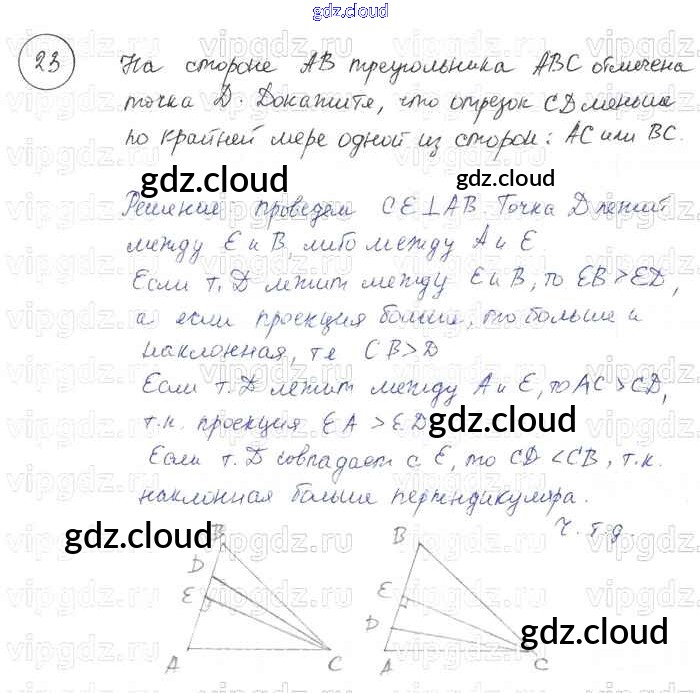 gdz.cloud
23
На стороне AB треугольника ABC отмечена
точка D. Докажите, что отрезок CD меньше
по крайней мере одной из сторон: AC или BC.
gdz.cloud
gdz.cloud
Решение: проведем CE⊥AB. Точка D лежит
между E и B, либо между A и E
Если т. D лежит между E и B, то EB > ED,
а если проекция больше, то больше и
наклонная, т.е CB > D
Если т. D лежит между A и E, то AC > CD,
т.к. проекция EA > ED
gdz.cloud
Если т. D совпадает с E, то CD < CB, т.к.
наклонная больше перпендикуляра.
Ч. т. д.
gdz.cloud
B
D
E
A
C
B
E
D
A
C
gdz.cloud
vipgdz.ru